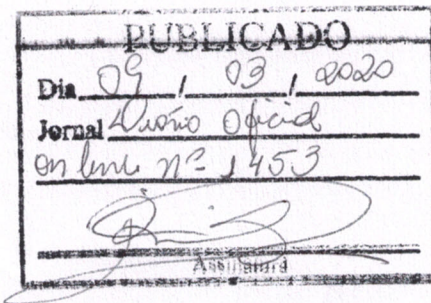 PUBLICADO
Dia 09 / 03 / 2020
Jornal Diário Oficial
on line nº 1453
Assinatura